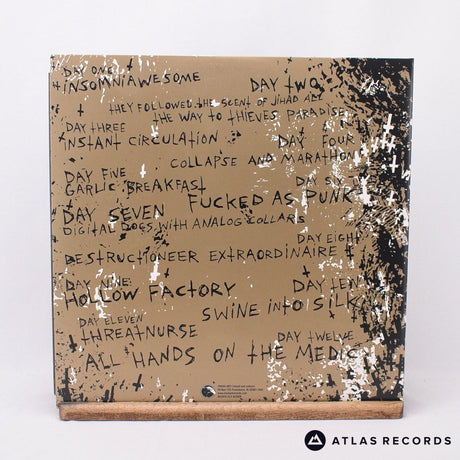 DAY ONE:
INSOMNIAWESOME
DAY TWO
THEY FOLLOWED THE SCENT OF JIHAD ALL
THE WAY TO THIEVES PARADISE
DAY THREE
INSTANT CIRCULATION
DAY FOUR
COLLAPSE AND MARATHON
DAY FIVE
GARLIC BREAKFAST
DAY SIX
FUCKED AS PUNK
DAY SEVEN
DIGITAL DOGS WITH ANALOG COLLARS
DAY EIGHT
DESTRUCTIONEER EXTRAORDINAIRE
DAY NINE:
HOLLOW FACTORY
DAY TEN
SWINE INTO SILK
DAY ELEVEN
THREATNURSE
DAY TWELVE
ALL HANDS ON THE MEDIC
ATLAS RECORDS